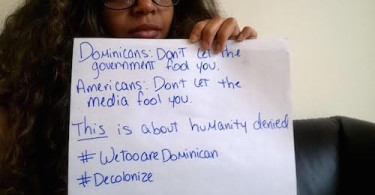 Dominicans: Don't let the
government fool you.
Americans: Don't let the
media fool you.
This is about humanity denied
#WeTooareDominican
#Decolonize